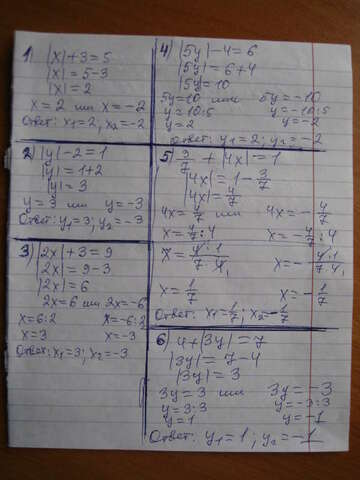 1
|x|+3=5
|x|=5-3
|x|=2
x=2 или x=-2
Ответ: x₁=2, x₂=-2
2) |y|-2=1
|y|=1+2
|y|=3
y=3 или y=-3
Ответ: y₁=3; y₂=-3
3) |2x|+3=9
|2x|=9-3
|2x|=6
2x=6 или 2x=-6
x=6:2 x=-6:2
x=3 x=-3
Ответ: x₁=3; x₂=-3
4) |5y|-4=6
|5y|=6+4
|5y|=10
5y=10 или 5y=-10
y=10:5 y=-10:5
y=2 y=-2
Ответ: y₁=2; y₂=-2
5) 3/7+|4x|=1
|4x|=1-3/7
|4x|=4/7
4x=4/7 или 4x=-4/7
x=4/7:4 x=-4/7:4
x=4·1/7·4₁ x=-4·1/7·4₁
x=1/7 x=-1/7
Ответ: x₁=1/7; x₂=-1/7
6) 4+|3y|=7
|3y|=7-4
|3y|=3
3y=3 или 3y=-3
y=3:3 y=-3:3
y=1 y=-1
Ответ: y₁=1; y₂=-1